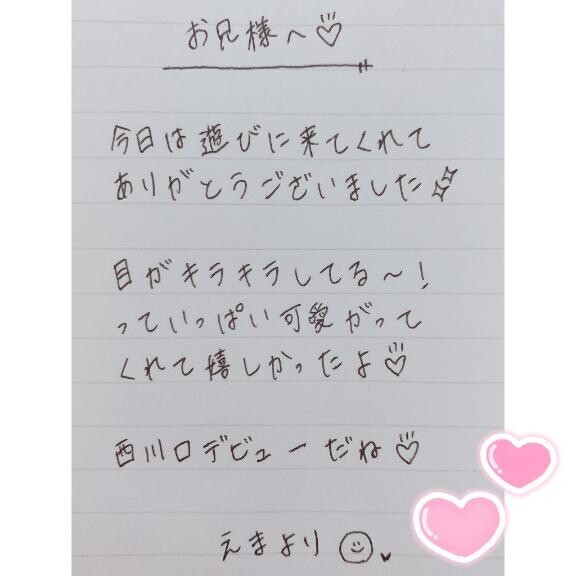 お兄様へ♡
今日は遊びに来てくれて
ありがとうございました✨
目がキラキラしてる〜!
っていっぱい可愛がって
くれて嬉しかったよ♡
西川口デビューだね♡
えまより☺